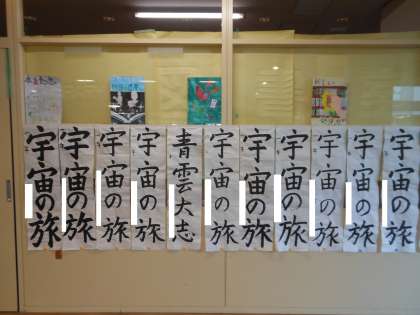 宇宙の旅
宇宙の旅
宇宙の旅
宇宙の旅
青雲大志
宇宙の旅
宇宙の旅
宇宙の旅
宇宙の旅
宇宙の旅
宇宙の旅